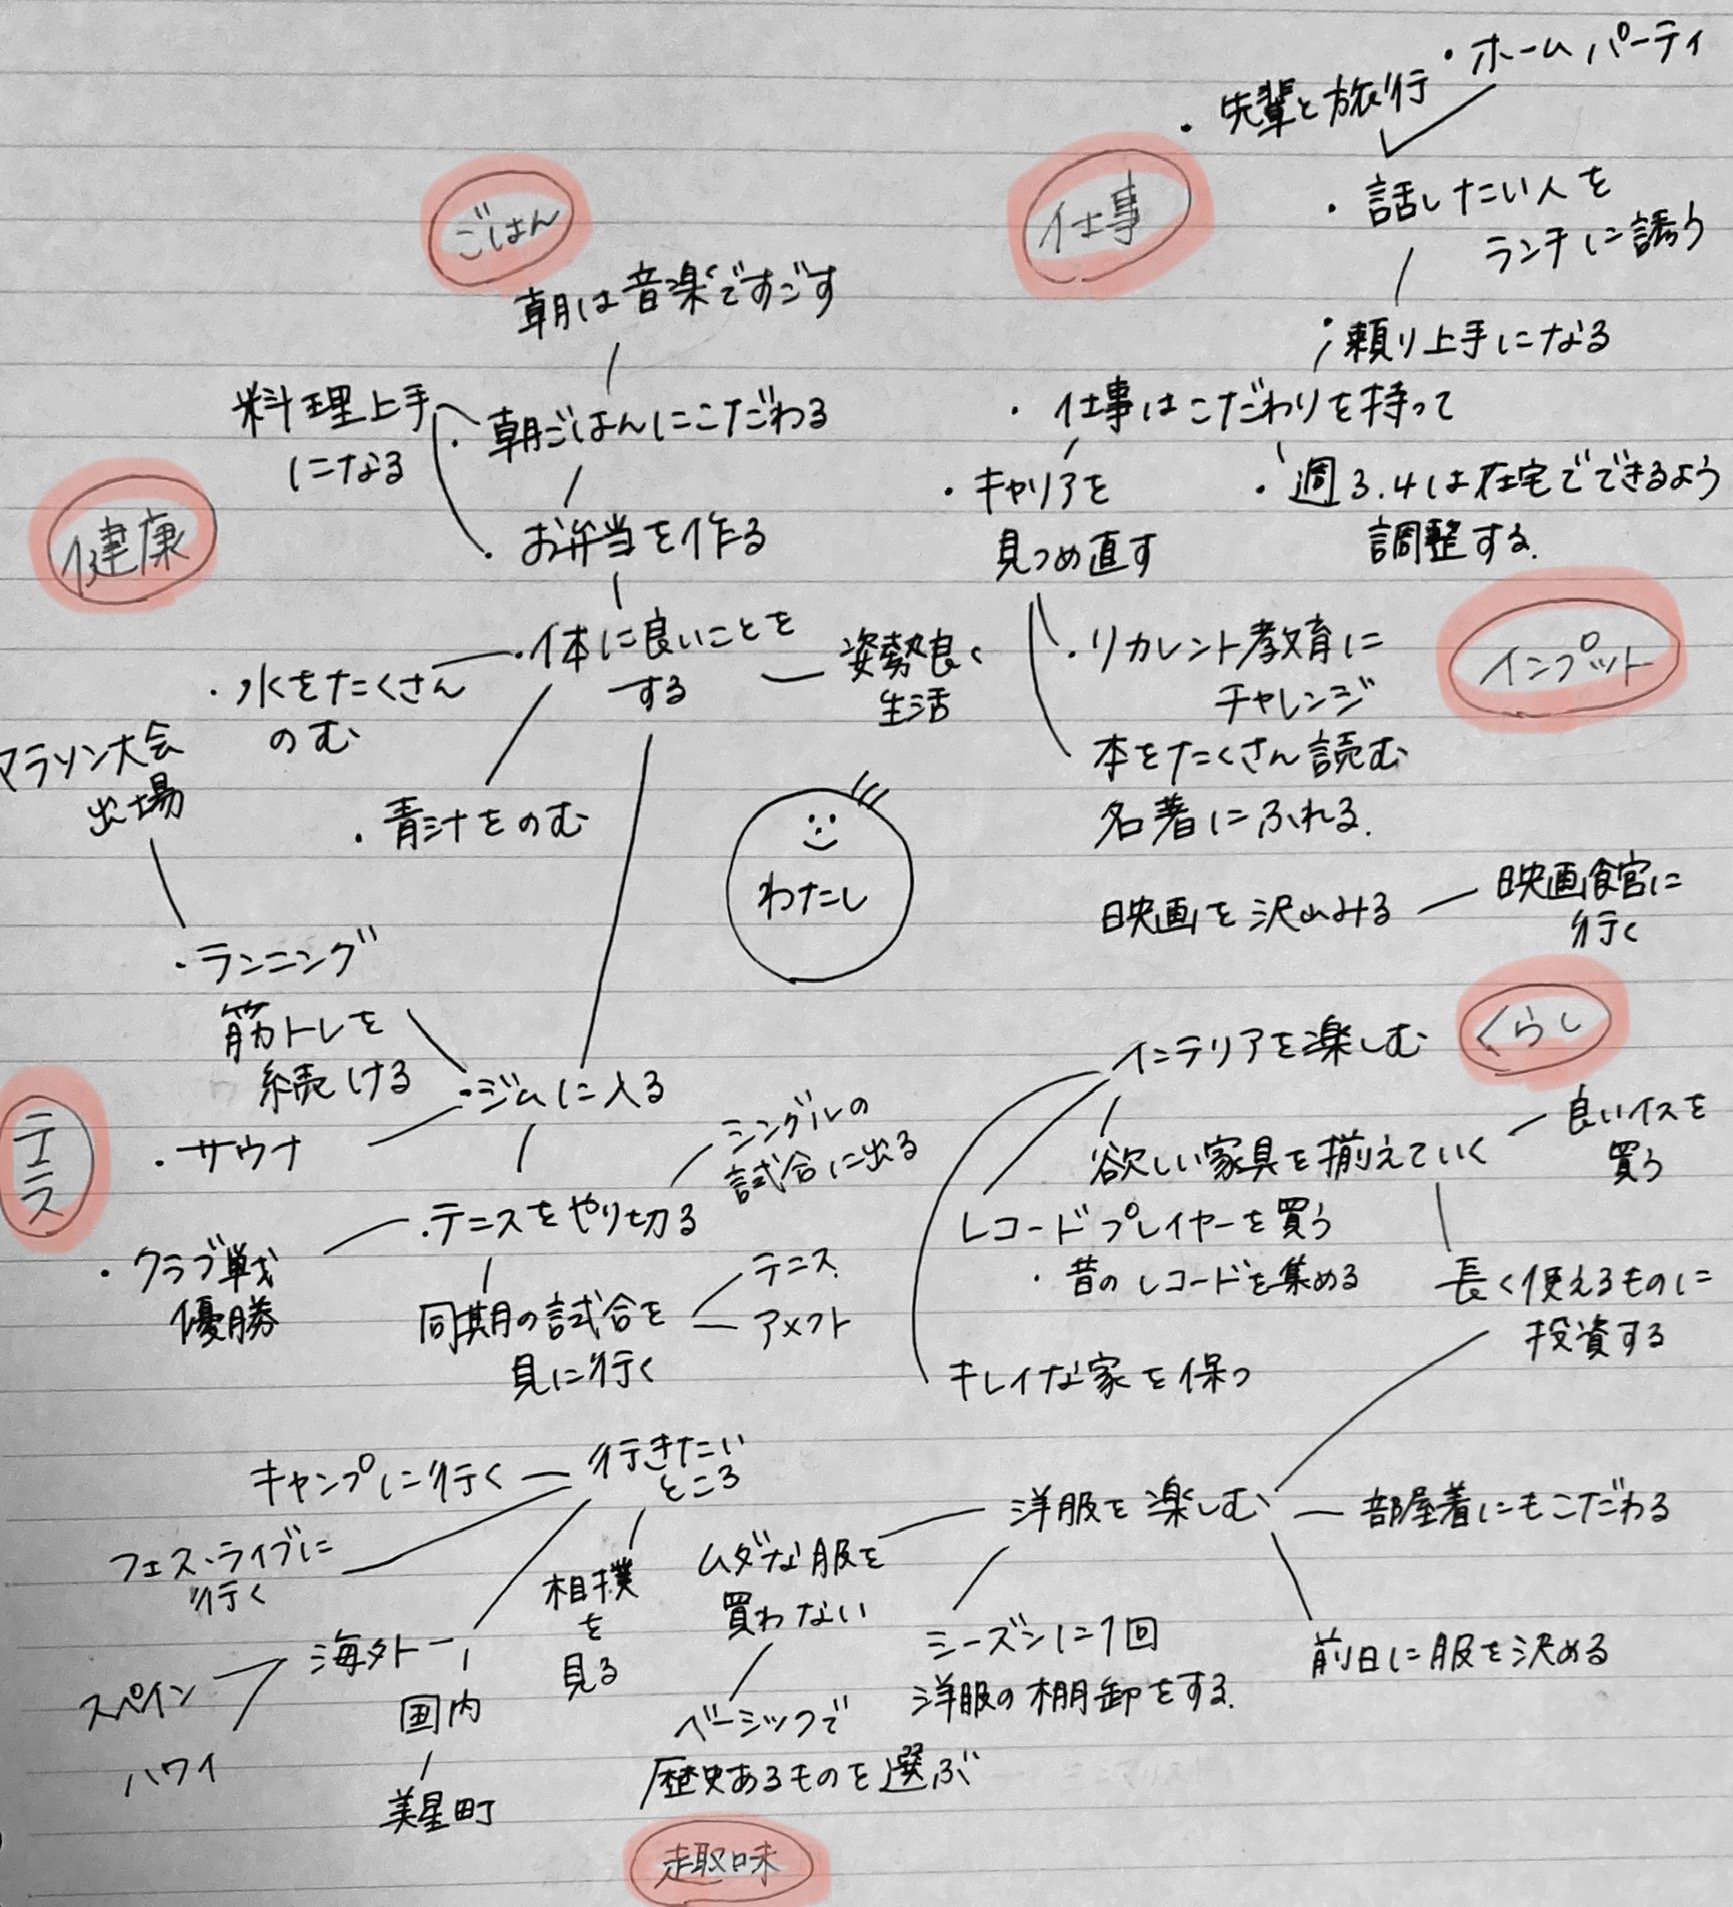 ・ホームパーティ
・先輩と旅行
・話したい人を
ランチに誘う
・頼り上手になる
仕事
・仕事はこだわりを持って
・キャリアを
見つめ直す
・週3.4は在宅でできるよう
調整する.
ごはん
朝は音楽ですごす
料理上手
になる
・朝ごはんにこだわる
・お弁当を作る
健康
・体に良いことを
する
姿勢良く
生活
・水をたくさん
のむ
・青汁をのむ
マラソン大会
出場
・ランニング
筋トレを
続ける
・ジムに入る
・サウナ
わたし
インプット
・リカレント教育に
チャレンジ
本をたくさん読む
名著にふれる.
映画を沢山みる
映画館に
行く
くらし
インテリアを楽しむ
欲しい家具を揃えていく
良いイスを
買う
レコードプレイヤーを買う
・昔のレコードを集める
長く使えるものに
投資する
キレイな家を保つ
テニス
・テニスをやり切る
シングルの
試合に出る
・クラブ戦
優勝
同期の試合を
見に行く
テニス
アメフト
行きたい
ところ
キャンプに行く
フェス・ライブに
行く
相撲
を
見る
海外
スペイン
ハワイ
国内
美星町
洋服を楽しむ
部屋着にもこだわる
ムダな服を
買わない
シーズンに1回
洋服の棚卸をする.
前日に服を決める
ベーシックで
歴史あるものを選ぶ
趣味